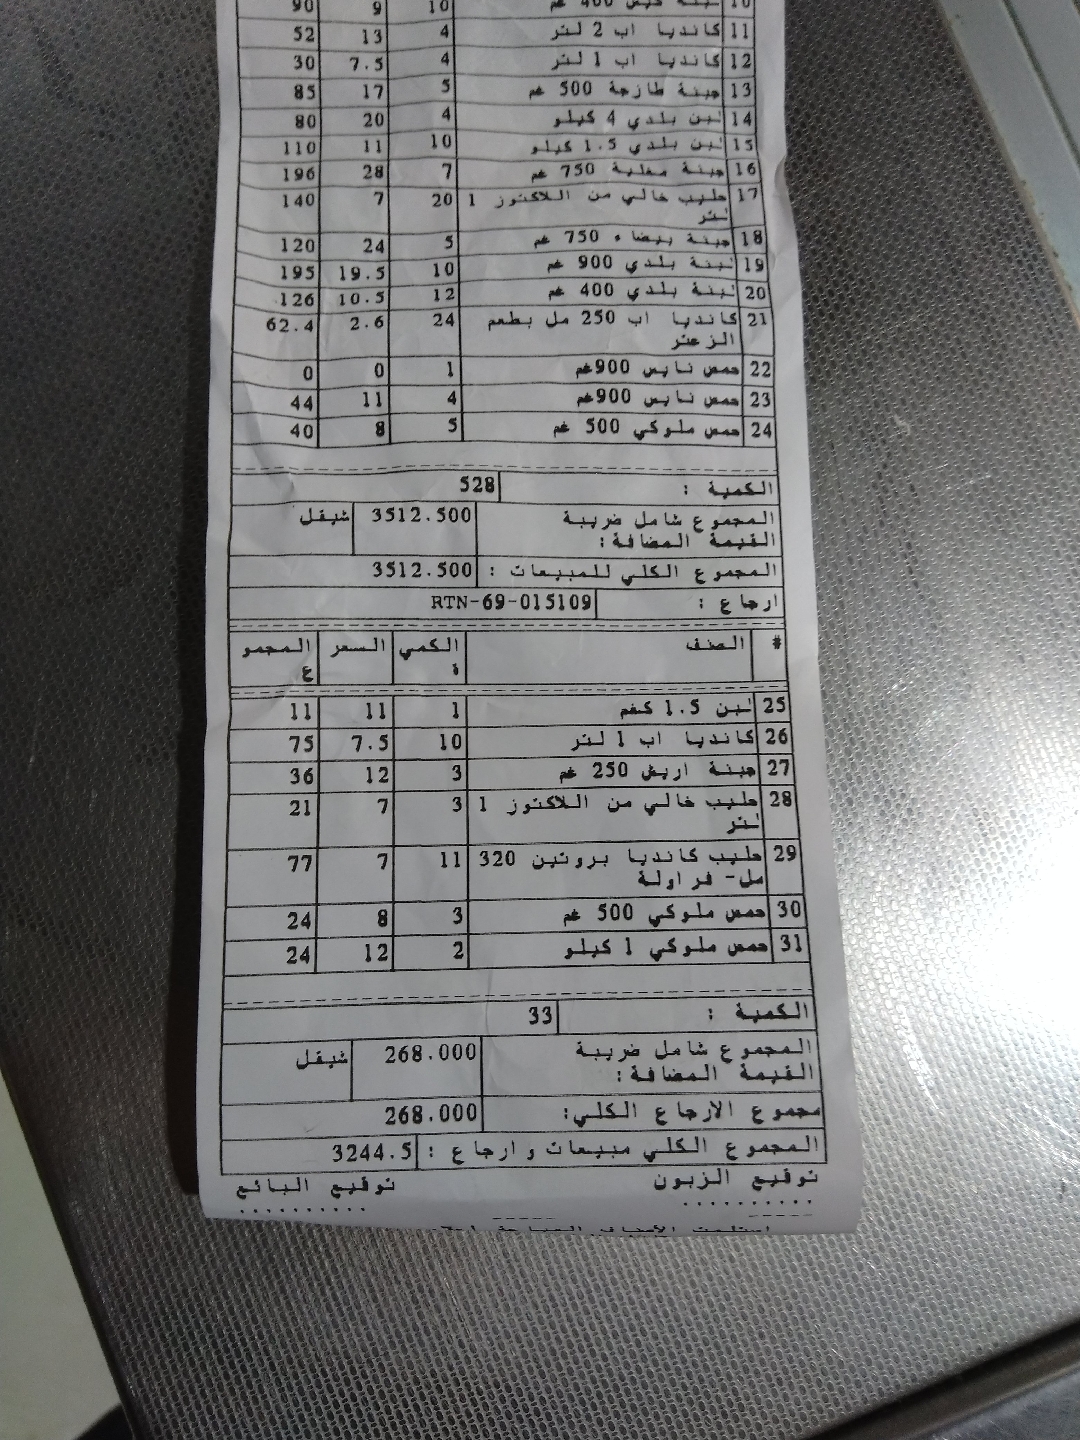 10 لبنة كيس 400 غم 10 9 90
11 كانديا اب 2 لتر 4 13 52
12 كانديا اب 1 لتر 4 7.5 30
13 جبنة طازجة 500 غم 5 17 85
14 لبن بلدي 4 كيلو 4 20 80
15 لبن بلدي 1.5 كيلو 10 11 110
16 جبنة مغلية 750 غم 7 28 196
17 حليب خالي من اللاكتوز 1 20 7 140
لتر
18 جبنة بيضاء 750 غم 5 24 120
19 لبنة بلدي 900 غم 10 19.5 195
20 لبنة بلدي 400 غم 12 10.5 126
21 كانديا اب 250 مل بطعم 24 2.6 62.4
الزعتر
22 حمص نايس 900غم 1 0 0
23 حمص نايس 900غم 4 11 44
24 حمص ملوكي 500 غم 5 8 40
الكمية : 528
المجموع شامل ضريبة 3512.500 شيقل
القيمة المضافة:
المجموع الكلي للمبيعات : 3512.500
ارجاع : RTN-69-015109
# الصنف الكمي السعر المجمو
ة ع
25 لبن 1.5 كغم 1 11 11
26 كانديا اب 1 لتر 10 7.5 75
27 جبنة اريش 250 غم 3 12 36
28 حليب خالي من اللاكتوز 1 3 7 21
لتر
29 حليب كانديا بروتين 320 11 7 77
مل- فراولة
30 حمص ملوكي 500 غم 3 8 24
31 حمص ملوكي 1 كيلو 2 12 24
الكمية : 33
المجموع شامل ضريبة 268.000 شيقل
القيمة المضافة:
مجموع الارجاع الكلي: 268.000
المجموع الكلي مبيعات و ارجاع : 3244.5
توقيع الزبون توقيع البائع